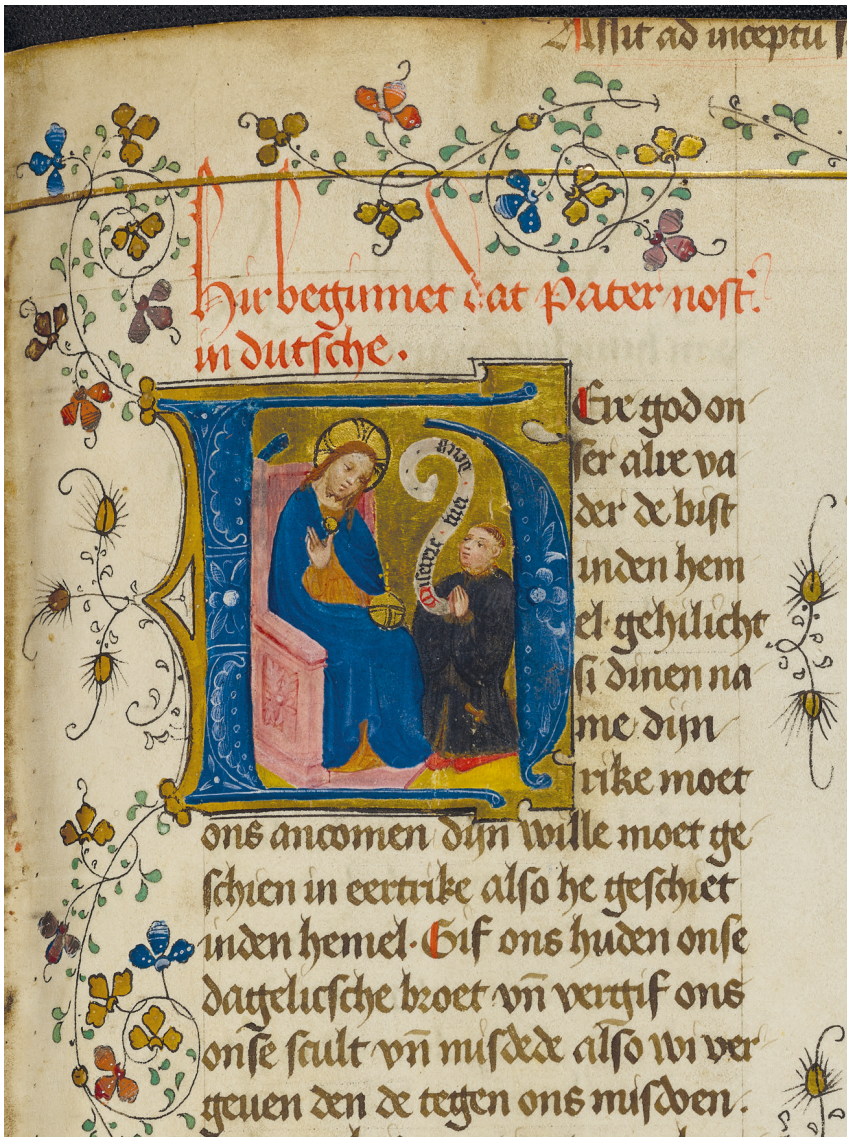 Assit ad inceptu s
Hir beginnet dat Pater nost.
in dutsche.
miserere mei
HEre god on
ser alre va
der de bist
inden hem
el gehilicht
si dinen na
me dijn
rike moet
ons ancomen dijn wille moet ge
schien in eertrike also he geschiet
inden hemel. Gif ons huden onse
dagelicsche broet vn̄ vergif ons
onse scult vn̄ misdede also wi ver
geuen den de tegen ons misdoen.